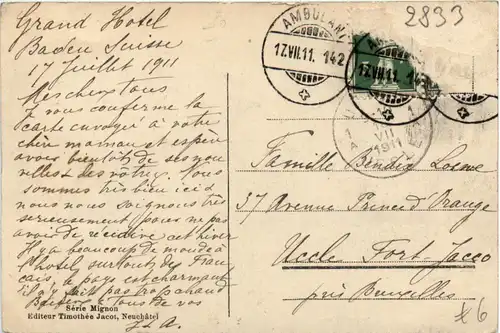 Grand Hotel
Baden Suisse
17 Juillet 1911
Mes chers tous
à vous confirme la
carte envoyée à votre
chère maman et espère
avoir bientôt de ses nou
velles et des vôtres. Nous
sommes très bien ici et
nous nous soignons très
sérieusement pour ne pas
avoir de récidive cet hiver
Il y a beaucoup de monde à
l'hôtel surtout des Fran
çais, le pays est charmant
il n'y fait pas trop chaud
Baisers à tous de vos
J. A.
Série Mignon
Editeur Timothée Jacot, Neuchâtel
2833
AMBULANT
17.VII.11. 142
17.VII.11. 142
VII
1911
Famille Bendix Loewe
37 Avenue Prince d'Orange
Uccle Fort-Jacco
près Bruxelles
£6